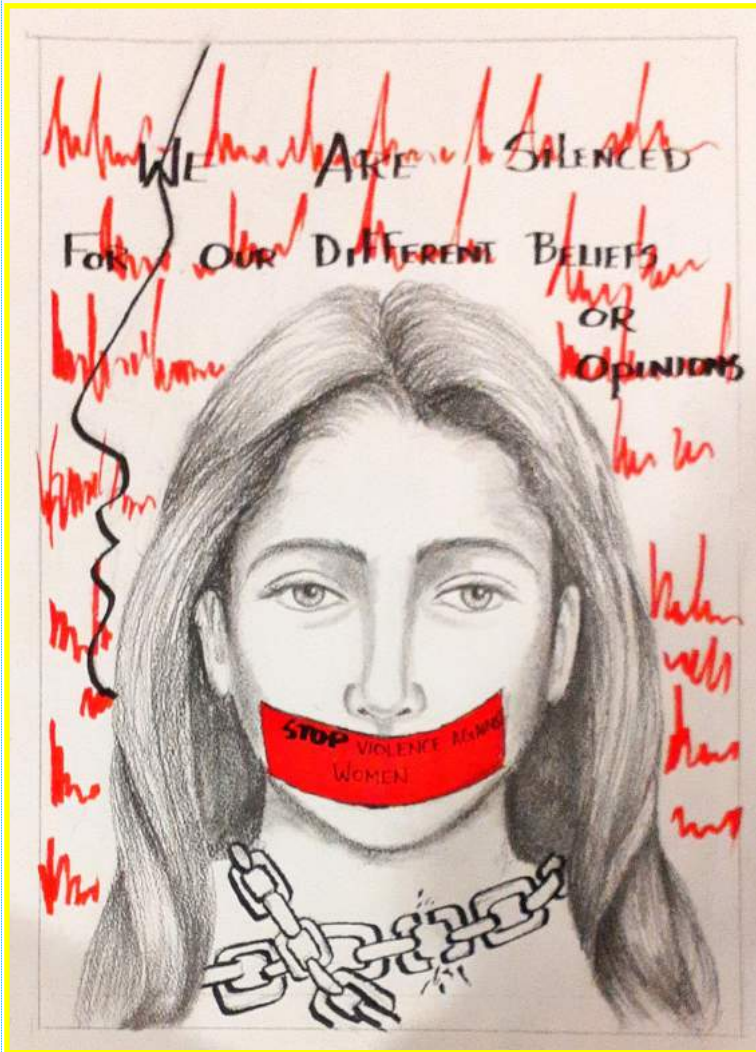 WE ARE SILENCED
FOR OUR DIFFERENT BELIEFS
OR
OPINIONS
STOP VIOLENCE AGAINST
WOMEN